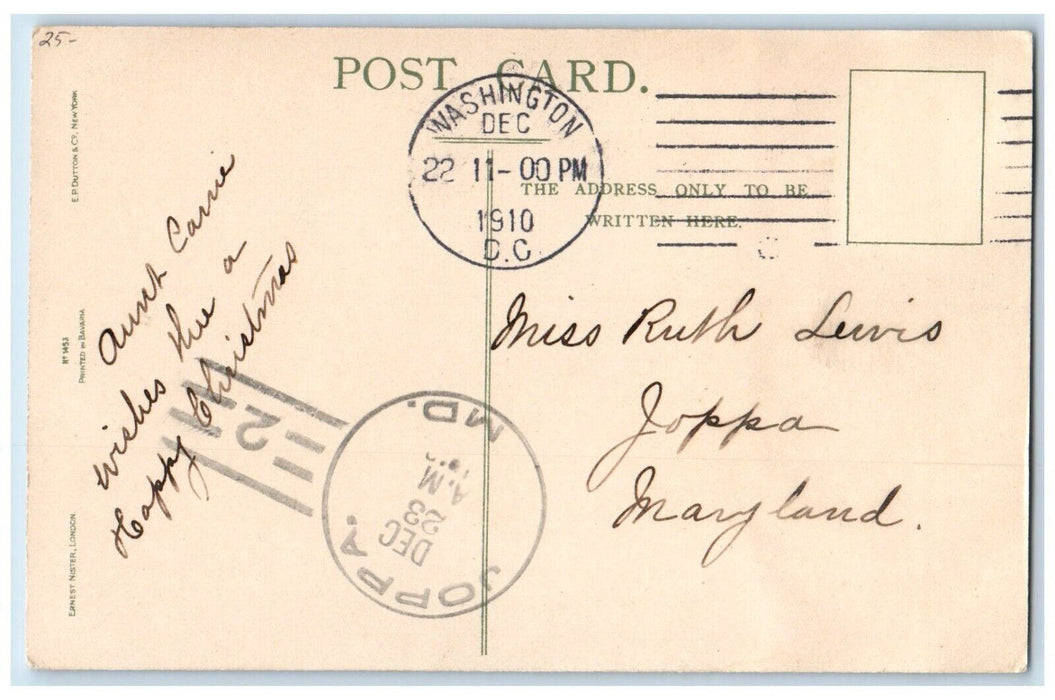 25-
POST CARD.
WASHINGTON
DEC
22 11-00 PM
1910
D.C.
THE ADDRESS ONLY TO BE
WRITTEN HERE.
E.P. DUTTON & CO., NEW YORK
No 1453
PRINTED IN BAVARIA
ERNEST NISTER, LONDON
Aunt Carrie
wishes thee a
Happy Christmas
2
JOPPA.
MD.
DEC
23
A.M
Miss Ruth Lewis
Joppa
Maryland.